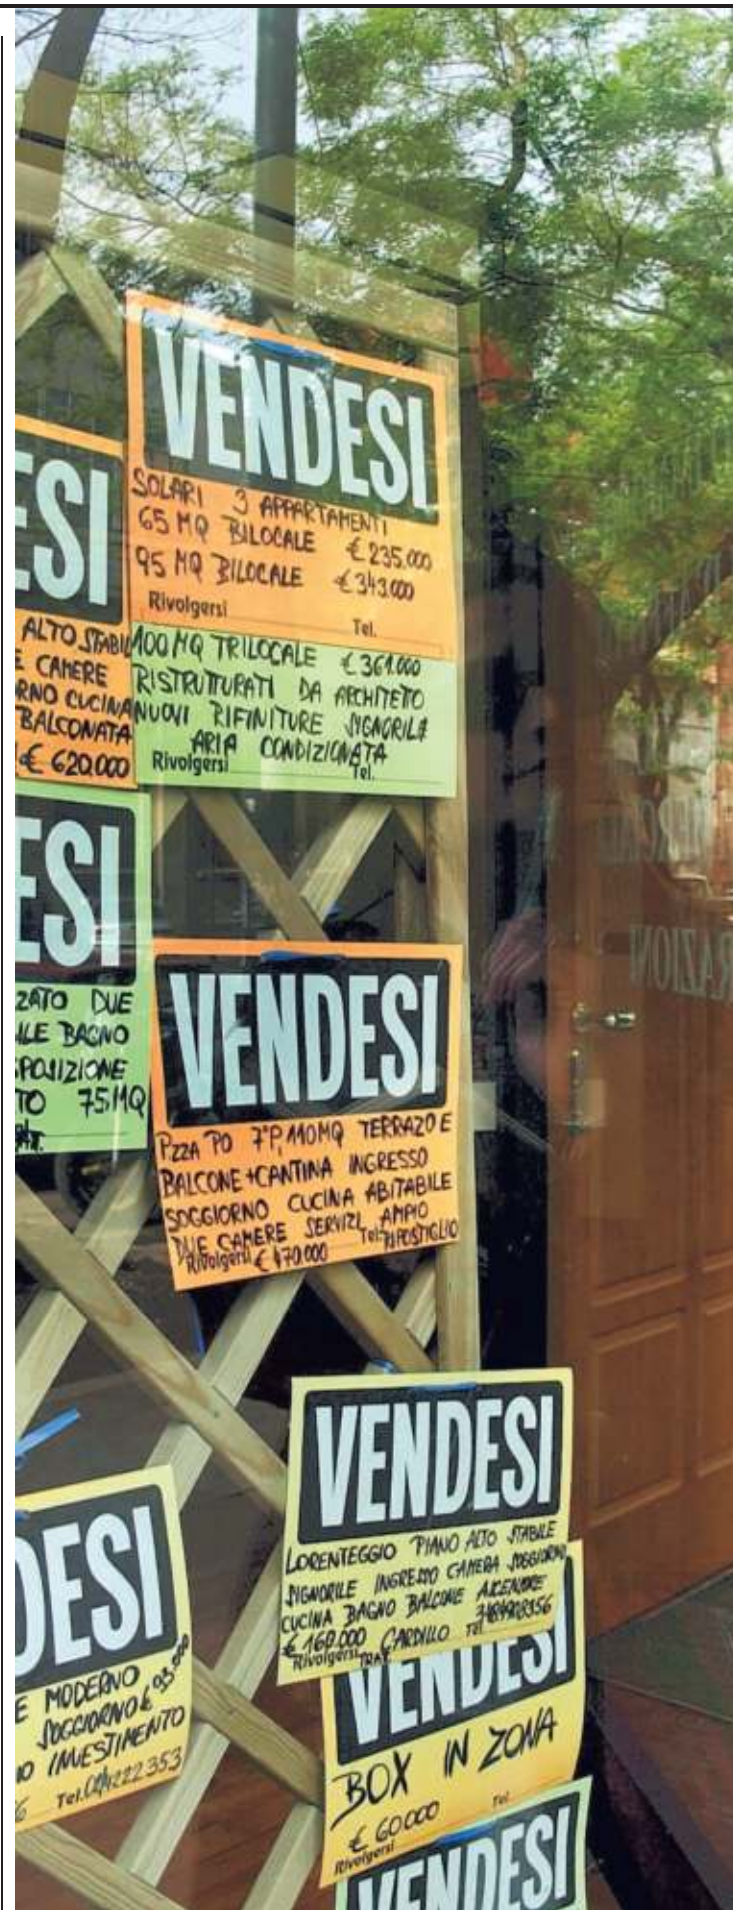 VENDESI
SOLARI 3 APPARTAMENTI
65 MQ BILOCALE € 235.000
95 MQ BILOCALE € 343.000
Rivolgersi Tel.
100 MQ TRILOCALE € 361.000
RISTRUTTURATI DA ARCHITETO
NUOVI RIFINITURE
ARIA CONDIZIONATA
Rivolgersi Tel.
ESI
ALTO STABIL
E CAMERE
RNO CUCINA
BALCONATA
€ 620.000
ESI
ZATO DUE
ILE BAGNO
POSIZIONE
TO 75 MQ
VENDESI
PZZA PO 7°P, 110MQ TERRAZO E
BALCONE + CANTINA INGRESSO
SOGGIORNO CUCINA ABITABILE
DUE CAMERE SERVIZI AMPIO
RIPOSTIGLIO
Rivolgersi € 470.000 Tel.
VENDESI
LORENTEGGIO PIANO ALTO STABILE
SIGNORILE INGRESSO CAMERA SOGGIORNO
CUCINA BAGNO BALCONE
€ 160.000 CARDILLO Tel.
Rivolgersi
DESI
E MODERNO
SOGGIORNO €
IO INVESTIMENTO
Tel.
VENDESI
BOX IN ZONA
€ 60.000 Tel.
Rivolgersi
VENDESI
RAZIONI